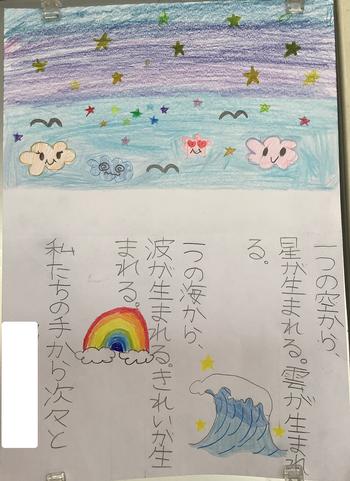 一つの空から、
星が生まれる。雲が生まれ
る。
一つの海から、
波が生まれる。きれいが生
まれる。
私たちの手から次々と